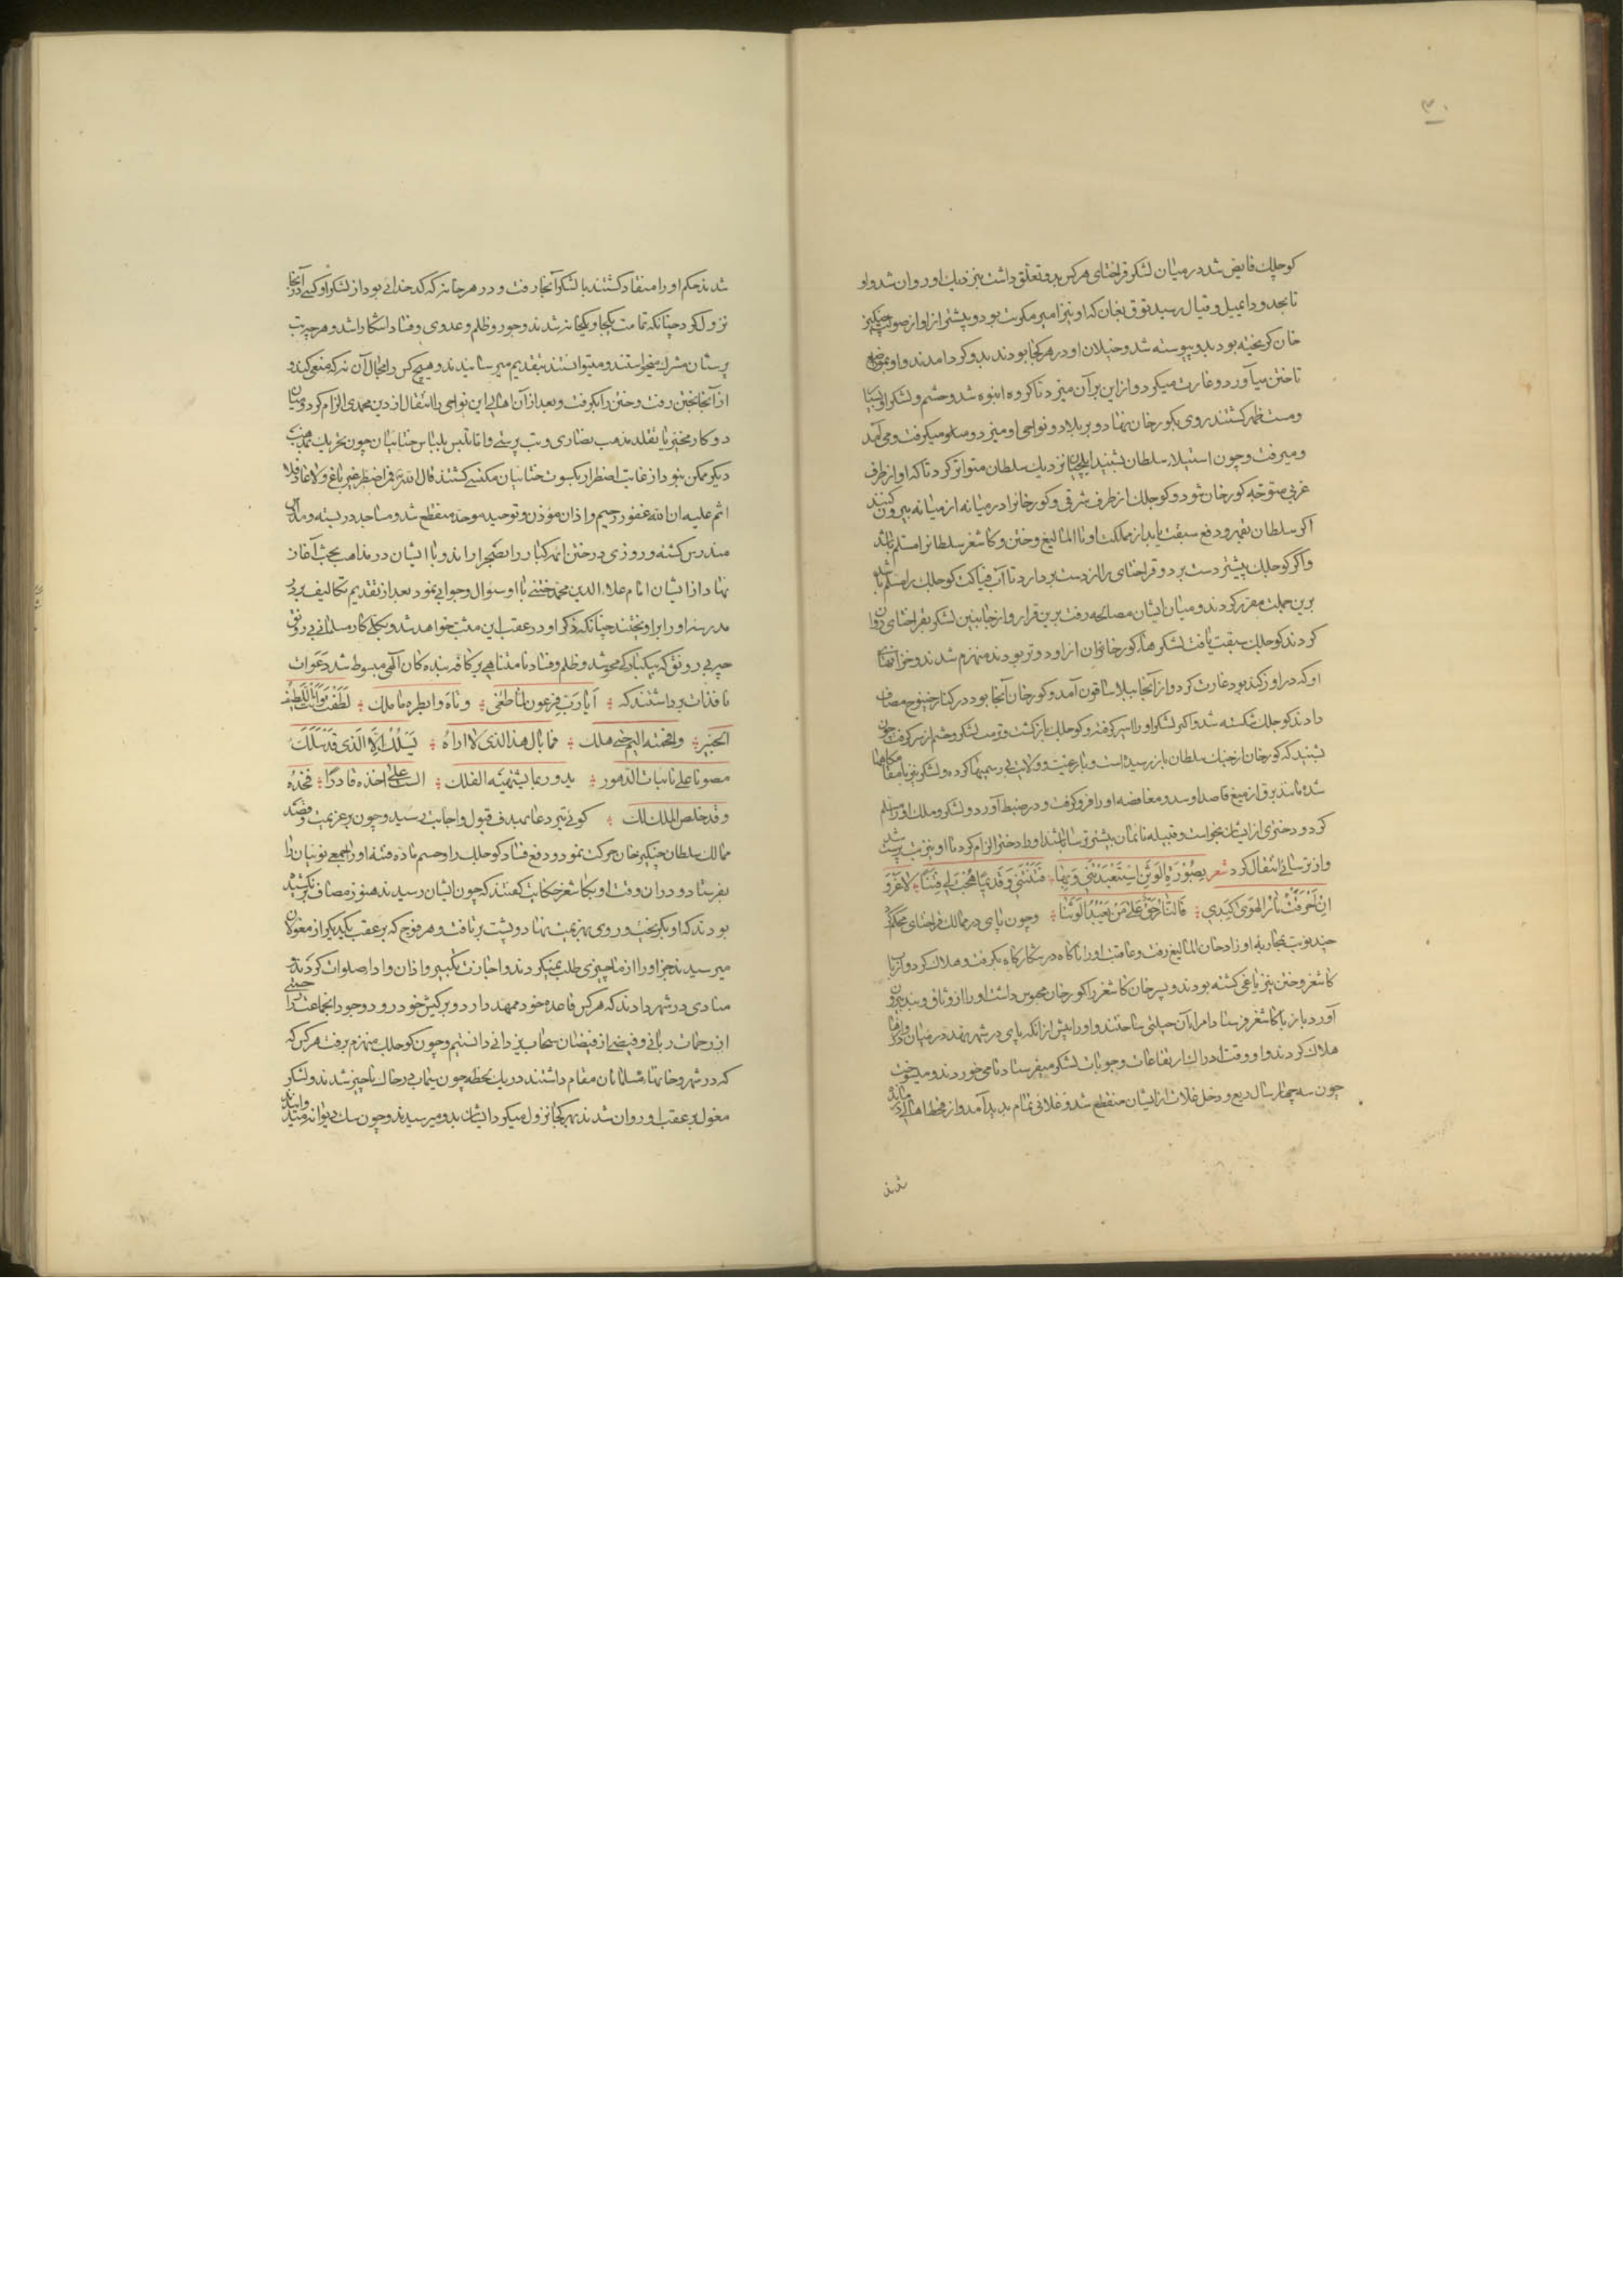 ۳۰
کوچلک فایض شد در میان لشکر قراختای هرکس بدو تعلق داشت بنزدیک او روان شد و او
تا بحدود ایمیل و قیالیغ رسید توق تغان که او نیز امیر مکریت بود و پیشتر از او از صولت چنکیز
خان کریخته بود بدو پیوسته شد و خیلان او در هر کجا بودند بدو کرد آمدند و او بمواضع
تاختن میآورد و غارت میکرد و از این بر آن میزد تا کروه انبوه شد و حشم و لشکر او بسیار
و مستظهر کشتند روی بکورخان نهاد و بر بلاد و نواحی او میزد و میکرفت و می آمد
و میرفت و چون استیلاء سلطان بشنید ایلچیان نزدیک سلطان متواتر کرد تا که او از طرف
غربی متوجه کورخان شود و کوچلک از طرف شرقی و کورخانرا در میانه از میانه بیرون کنند
اکر سلطان بقهر و دفع سبقت یابد از مملکت او تا المالیغ و ختن و کاشغر سلطانرا مسلم باشد
و اکر کوچلک پیشتر دست برد و قراختای را از دست بردارد تا آب فناکت کوچلک را مسلم باشد
برین جملت مقرر کردند و میان ایشان مصالحه رفت برین قرار و از جانبین لشکر بقراختای روان
کردند کوچلک سبقت یافت لشکرهاء کورخان از او دورتر بودند منهزم شدند و خزانهاء
او که در اوزکند بود غارت کرد و از آنجا ببلاساقون آمد و کورخان آنجا بود در کنار جینوج مصاف
دادند کوچلک شکسته شد و اکثر لشکر او را اسیر کرفتند و کوچلک بازکشت و ترتیب لشکر و حشم از سر کرفت چون
بشنید که کورخان از جنک سلطان باز رسیده است و با رعیت و ولایت بی رسمیها کرده و لشکر نیز با مقامکاهها
شده مانند برق از میغ قاصد او شد و مغافصه او را فرو کرفت و در ضبط آورد و لشکر و ملک او را مسلم
کرد و دختری از ایشان بخواست و قبیله نایمان بیشتر ترسا باشند او را دختر الزام کرد تا او نیز بت پرست شد
و از ترسائی انتقال کرد شعر بِصُورَةِ الوَثَنِ اسْتَعْبَدَتْنِی وَ بِهَا ؛ فَتَنْتَنِی وَ قَدِیماً هُجْتَ لِی فِتَناً ؛ لا غَرْوَ
اِنْ اَحْرَقَتْ نارُ الهَوی کَبِدِی ؛ فَالنّارُ حَقٌّ عَلی مَنْ یَعْبُدُ الوَثَنا ؛ و چون پای در ممالک قراختای محکم کرد
چند نوبت بمحاربه اوزار خان المالیغ رفت و عاقبت او را ناکاه در شکارکاه بکرفت و هلاک کرد و ارباب
کاشغر و ختن نیز یاغی کشته بودند و پسر خان کاشغر را کورخان محبوس داشت او را از وثاق و بند بیرون
آورد باز با کاشغر فرستاد امراء آن حیلتی ساختند و او را پیش از آنکه پای در شهر نهد در میان دروازه
هلاک کردند و او وقت ادراک ارتفاعات و جوبات لشکر میفرستاد تا می خوردند و میسوخت
چون سه چهار سال ریع و دخل غلات از ایشان منقطع شد و غلائی تمام پدید آمد و از قحط اهالی در ماندند
شدند
شدند حکم او را منقاد کشتند با لشکر آنجا رفت و در هر خانه که کدخدائی بود از لشکر او کسی در آنجا
نزول کرد چنانکه تمامت یکجا و یکخانه شدند و جور و ظلم و عدوی و فساد آشکارا شد و هرچه بت
پرستان مشرک میخواستند و میتوانستند بتقدیم میرسانیدند و هیچ کس را مجال آن نه که منعی کند و
از آنجا بختن رفت و ختن را بکرفت و بعد از آن اهالی این نواحی را بانتقال از دین محمدی الزام کرد و میان
دو کار مخیر یا تقلد مذهب نصاری و بت پرستی و اما تلبس بلباس ختائیان چون تحریک بمذهب
دیکر ممکن نبود از غایت اضطرار بکسوت ختائیان مکتسی کشتند قال الله تعالی فمن اضطر غیر باغ و لا عاد فلا
اثم علیه ان الله غفور رحیم و اذان مؤذن و توحید موحد منقطع شد و مساجد در بسته و مدارس
مندرس کشته و روزی در ختن ائمه کبار را بصحرا راند و با ایشان در مذاهب بحث آغاز
نهاد از ایشان امام علاء الدین محمد ختنی با او سؤال و جوابی نمود بعد از تقدیم تکالیف بر در
مدرسه او را برآویختند چنانکه ذکر او در عقب این مثبت خواهد شد و بکلی کار مسلمانی بی رونق
چه بی رونق که بیکبارکی محو شد و ظلم و فساد نامتناهی بر کافه بندکان آلهی مبسوط شد دعوات
نافذات برداشتند که ؛ اَیا رَبِّ فِرعَون لما طغی ؛ و تاه و ابطره ما ملک ؛ لَطُفْتَ وَ اَنْتَ اللَّطِیفُ
الخبیر ؛ و اقحمته الیم حتی هلک ؛ فما بال هذا الذی لا اراه ؛ یَسْلُکُ اِلّا الَّذِی قَدْ سَلَکَ
مصونا علی نائبات الدهور ؛ یدور بما یشتهیه الفلک ؛ الست علی اخذه قادرًا ؛ فخذه
و قد خلص الملک لک ؛ کوئی تیر دعا بهدف قبول و اجابت رسید و چون بر عزیمت و قصد
ممالک سلطان چنکیز خان حرکت نمود و دفع فساد کوچلک را و حسم ماده فتنه او را جمعی نوینان را
بفرستاد و در آن وقت او بکاشغر حکایت کفتند که چون ایشان رسیدند هنوز مصاف نکشیده
بودند که او بکریخت و روی بهزیمت نهاد و پشت برتافت و هر فوج که بر عقب یکدیکر از مغولان
میرسیدند جز او را از ما چیزی طلب نمیکردند و اجازت تکبیر و اذان و ادا صلوات کردند
منادی در شهر دادند که هرکس قاعده خود ممهد دارد و بر کیش خود رود و وجود آنجماعت را
از رحمات ربانی و فیضی از فیضان سحاب یزدانی دانستیم و چون کوچلک منهزم برفت هرکس که
که در شهر و خانهاء مسلمانان مقام داشتند در یک لحظه چون سیماب در خاک ناچیز شدند و لشکر
مغول بر عقب او روان شدند بهر کجا نزول میکرد ایشان بدو میرسیدند و چون سک دیوانه میدوانیدند